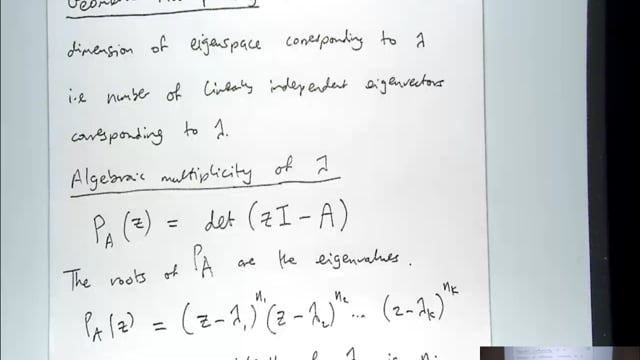 dimension of eigenspace corresponding to λ
i.e number of linearly independent eigenvectors
corresponding to λ.
Algebraic multiplicity of λ
P_A(z) = det (zI - A)
The roots of P_A are the eigenvalues.
P_A(z) = (z-λ_1)^{n_1} (z-λ_2)^{n_2} ... (z-λ_k)^{n_k}